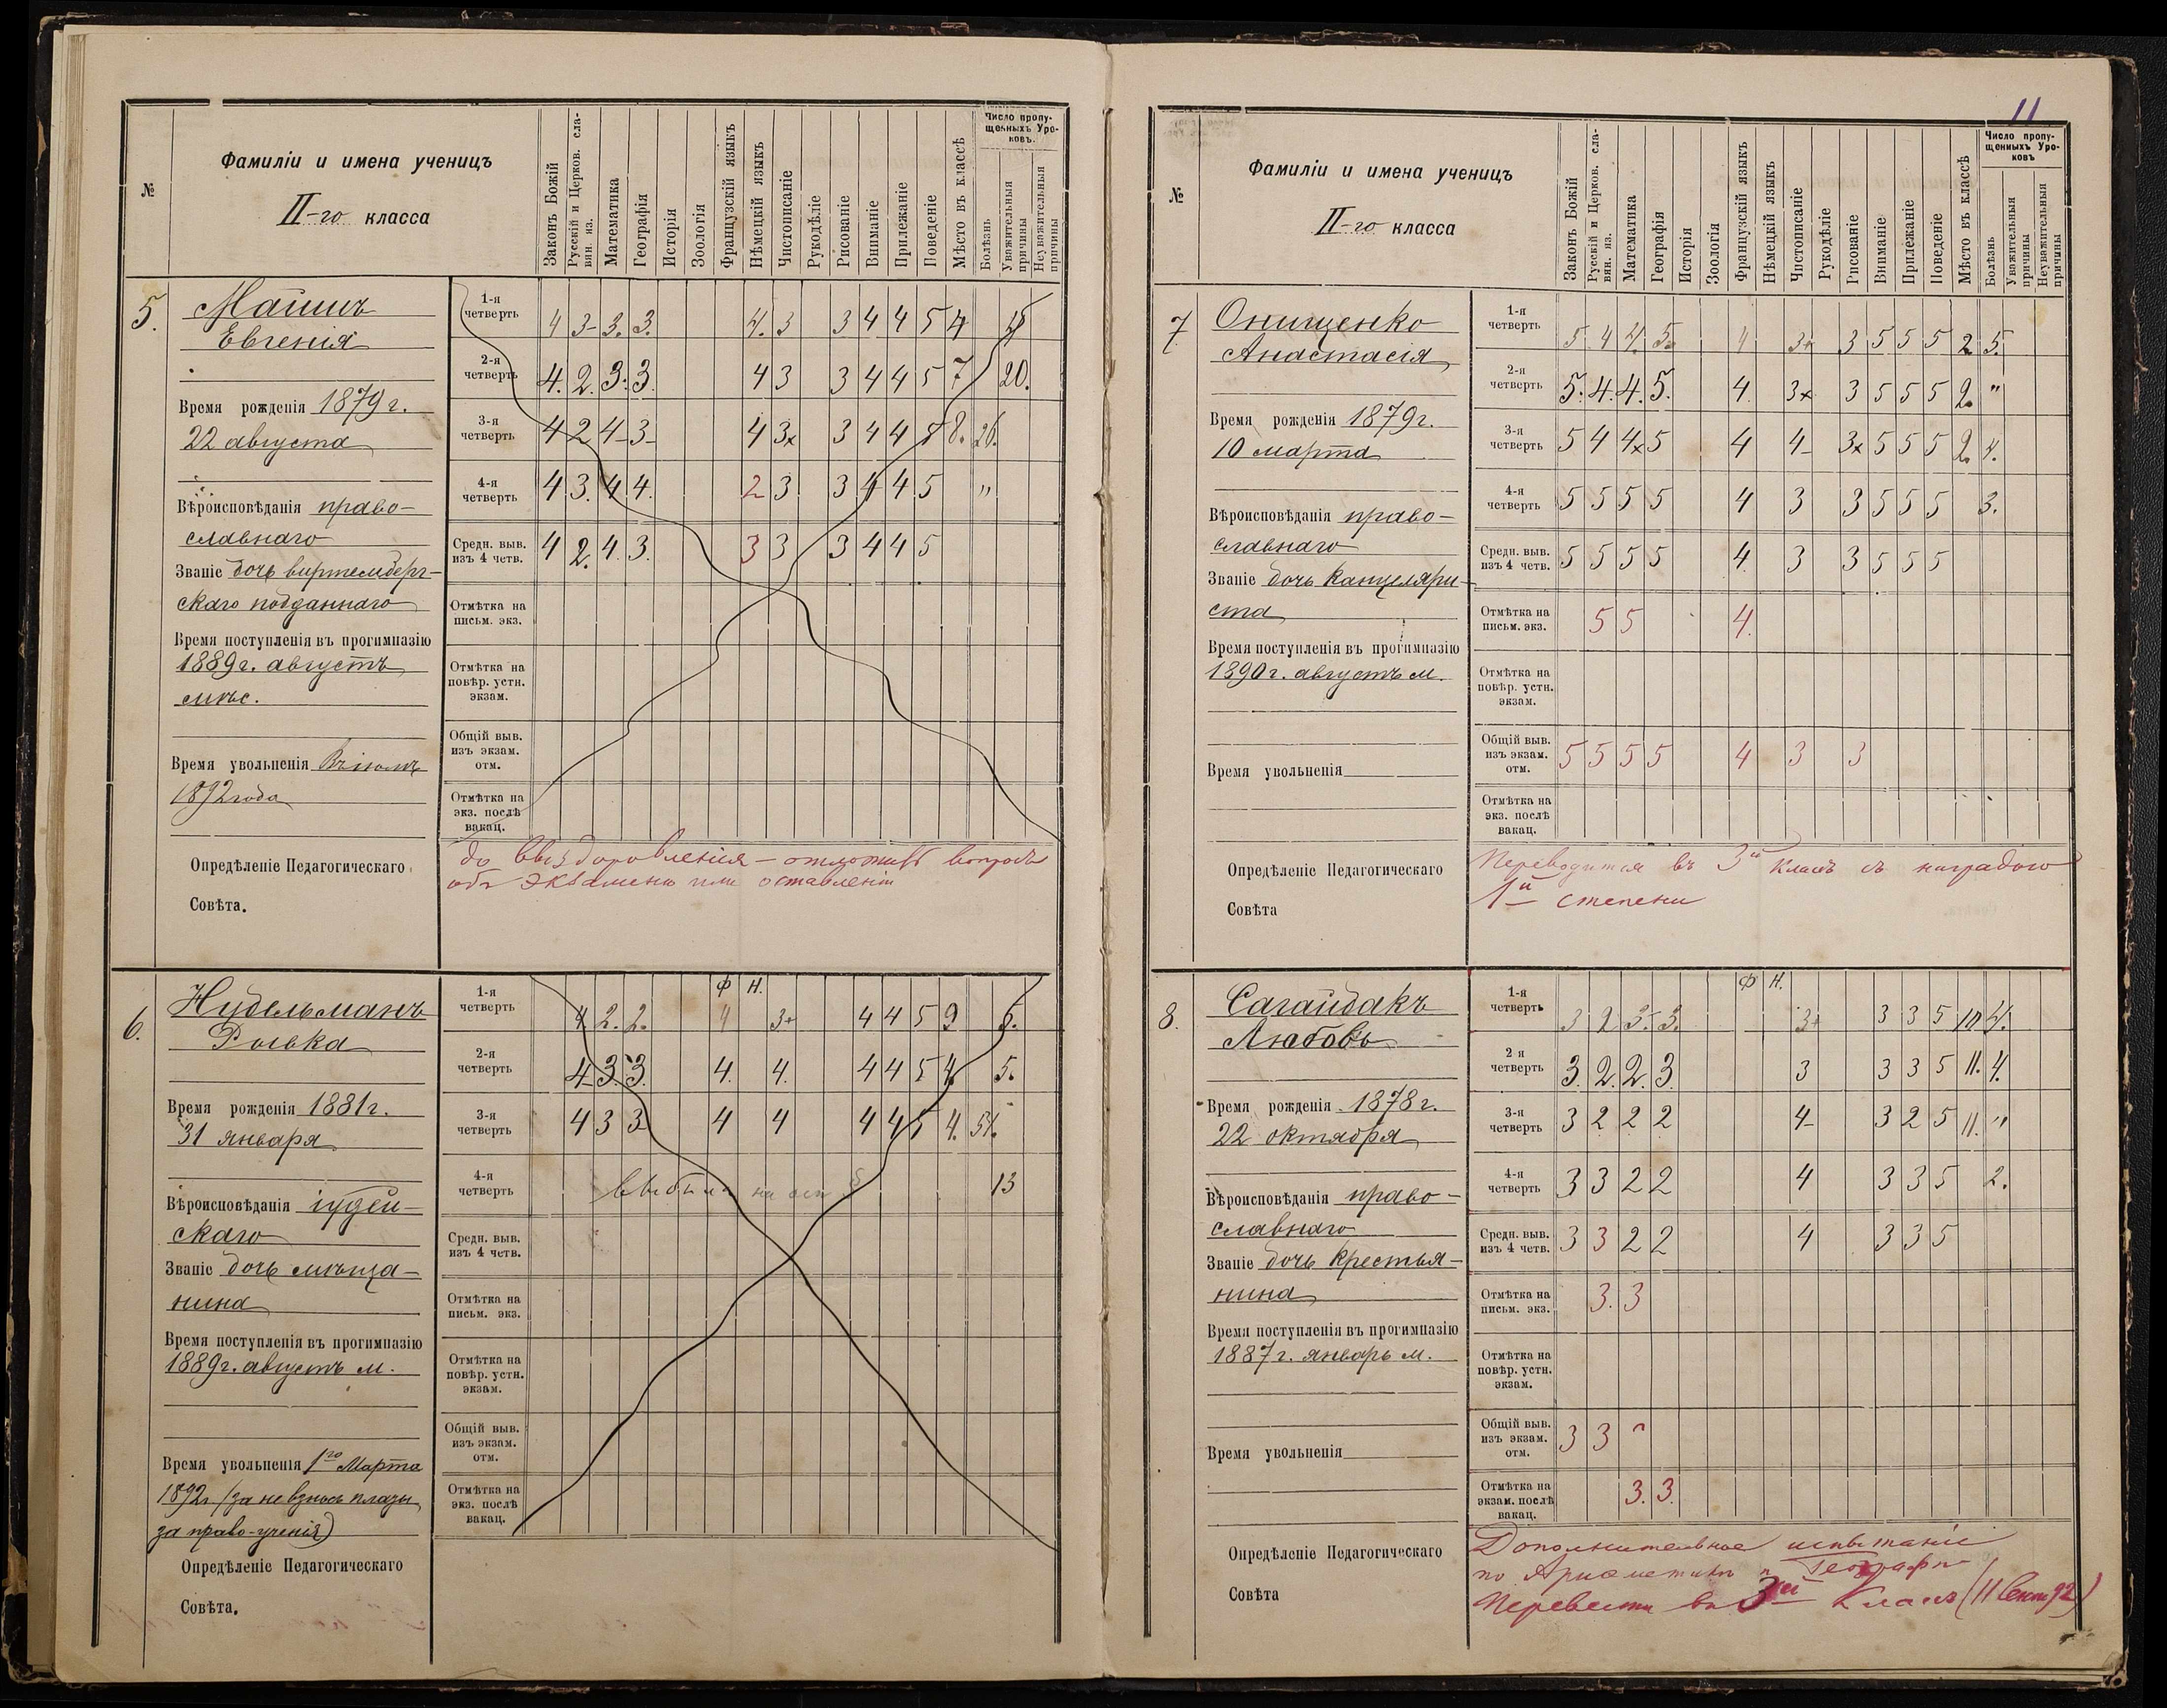 11
№
Фамиліи и имена ученицъ
II-го класса
Законъ Божій
Русскій и Церков. сла-
вян. яз.
Математика
Географія
Исторія
Зоологія
Французскій языкъ
Нѣмецкій языкъ
Чистописаніе
Рукодѣліе
Рисованіе
Вниманіе
Прилежаніе
Поведеніе
Мѣсто въ классѣ
Число пропу-
щенныхъ Уро-
ковъ.
Болѣзнь
Уважительныя
причины
Неуважительныя
причины
5.
Евгенія
Время рожденія 1879 г.
22 августа
Вѣроисповѣданія право-
славнаго
Званіе дочь виртемберг-
скаго подданнаго
Время поступленія въ прогимназію
1889 г. августъ
мѣс.
Время увольненія
1892 года
1-я четверть 4 3- 3. 3. 4. 3 3 4 4 5
2-я четверть 4. 2. 3. 3. 4 3 3 4 4 5 7 20.
3-я четверть 4 2 4- 3- 4 3x 3 4 4 5 8. 26.
4-я четверть 4 3. 4 4. 2 3 3 4 4 5 "
Средн. выв. изъ 4 четв. 4 2. 4. 3. 3 3 3 4 4 5
Отмѣтка на письм. экз.
Отмѣтка на повѣр. устн. экзам.
Общій выв. изъ экзам. отм.
Отмѣтка на экз. послѣ вакац.
Опредѣленіе Педагогическаго
Совѣта.
до выздоровленія – отложить вопросъ
объ экзамену или оставленіи
6.
Нудельманъ
Время рожденія 1881 г.
31 января
Вѣроисповѣданія іудей-
скаго
Званіе дочь мѣща-
нина
Время поступленія въ прогимназію
1889 г. августъ м.
Время увольненія 1го Марта
1892 г. (за не взносъ платы
за право-ученія)
Ф Н.
1-я четверть 4 2. 2. 4 3+ 4 4 5 9 6.
2-я четверть 4 3. 3. 4. 4. 4 4 5 4. 5.
3-я четверть 4 3 3 4 4 4 4 5 4. 54.
4-я четверть 13
Средн. выв. изъ 4 четв.
Отмѣтка на письм. экз.
Отмѣтка на повѣр. устн. экзам.
Общій выв. изъ экзам. отм.
Отмѣтка на экз. послѣ вакац.
Опредѣленіе Педагогическаго
Совѣта.
№
Фамиліи и имена ученицъ
II-го класса
Законъ Божій
Русскій и Церков. сла-
вян. яз.
Математика
Географія
Исторія
Зоологія
Французскій языкъ
Нѣмецкій языкъ
Чистописаніе
Рукодѣліе
Рисованіе
Вниманіе
Прилежаніе
Поведеніе
Мѣсто въ классѣ
Число пропу-
щенныхъ Уро-
ковъ
Болѣзнь
Уважительныя
причины
Неуважительныя
причины
7.
Онищенко
Анастасія
Время рожденія 1879 г.
10 марта
Вѣроисповѣданія право-
славнаго
Званіе дочь канцеляри-
ста
Время поступленія въ прогимназію
1890 г. августъ м.
Время увольненія
1-я четверть 5 4 4. 5. 4 3+ 3 5 5 5 2 5.
2-я четверть 5. 4. 4. 5. 4. 3x 3 5 5 5 2. "
3-я четверть 5 4 4x 5 4 4- 3x 5 5 5 2. 4.
4-я четверть 5 5 5 5 4 3 3 5 5 5 3.
Средн. выв. изъ 4 четв. 5 5 5 5 4. 3 3 5 5 5
Отмѣтка на письм. экз. 5 5 4.
Отмѣтка на повѣр. устн. экзам.
Общій выв. изъ экзам. отм. 5 5 5 5 4 3 3
Отмѣтка на экз. послѣ вакац.
Опредѣленіе Педагогическаго
Совѣта
Переводится въ 3й классъ съ наградою
1й степени
8.
Сагайдакъ
Любовь
Время рожденія 1878 г.
22 октября
Вѣроисповѣданія право-
славнаго
Званіе дочь крестья-
нина
Время поступленія въ прогимназію
1887 г. январь м.
Время увольненія
Ф Н.
1-я четверть 3 2 3- 3. 3+ 3 3 5 10 4.
2 я четверть 3. 2. 2. 3. 3 3 3 5 11. 4.
3-я четверть 3 2 2 2 4- 3 2 5 11. "
4-я четверть 3 3 2 2 4 3 3 5 2.
Средн. выв. изъ 4 четв. 3 3 2 2 4 3 3 5
Отмѣтка на письм. экз. 3. 3
Отмѣтка на повѣр. устн. экзам.
Общій выв. изъ экзам. отм. 3 3
Отмѣтка на экзам. послѣ вакац. 3. 3.
Опредѣленіе Педагогическаго
Совѣта
Дополнительное испытаніе
по Ариѳметикѣ и Географіи
Перевести въ 3й классъ (11 Сент 92)